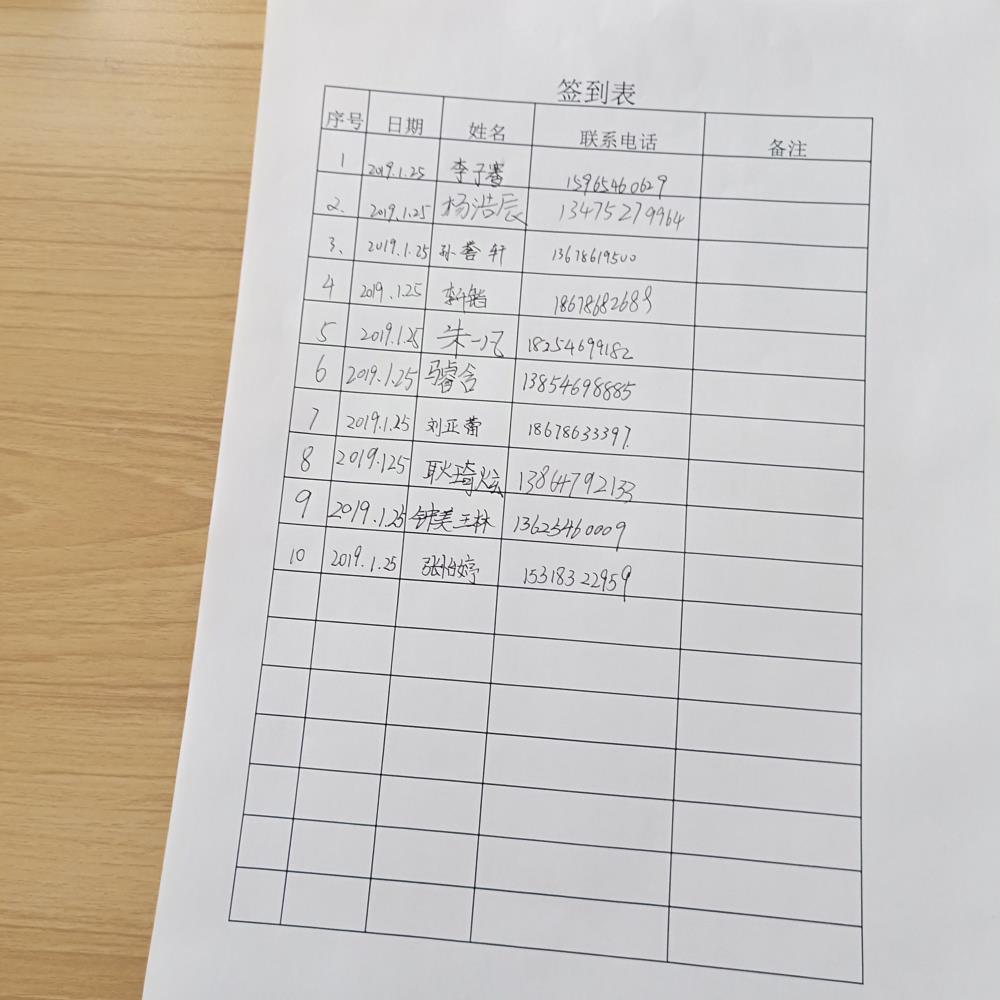 签到表
序号 日期 姓名 联系电话 备注
1 2019.1.25 李子睿 15965460629
2. 2019.1.25 杨浩辰 13475279964
3、 2019.1.25 孙誉轩 13678619500
4 2019.1.25 18678682689
5 2019.1.25 朱一凡 18254699182
6 2019.1.25 马睿含 13854698885
7 2019.1.25 刘正蕾 18678633397.
8 2019.125 耿琦炫 13864792133
9 2019.1.25 钟美玉林 13625460009
10 2019.1.25 张怡婷 15318322959